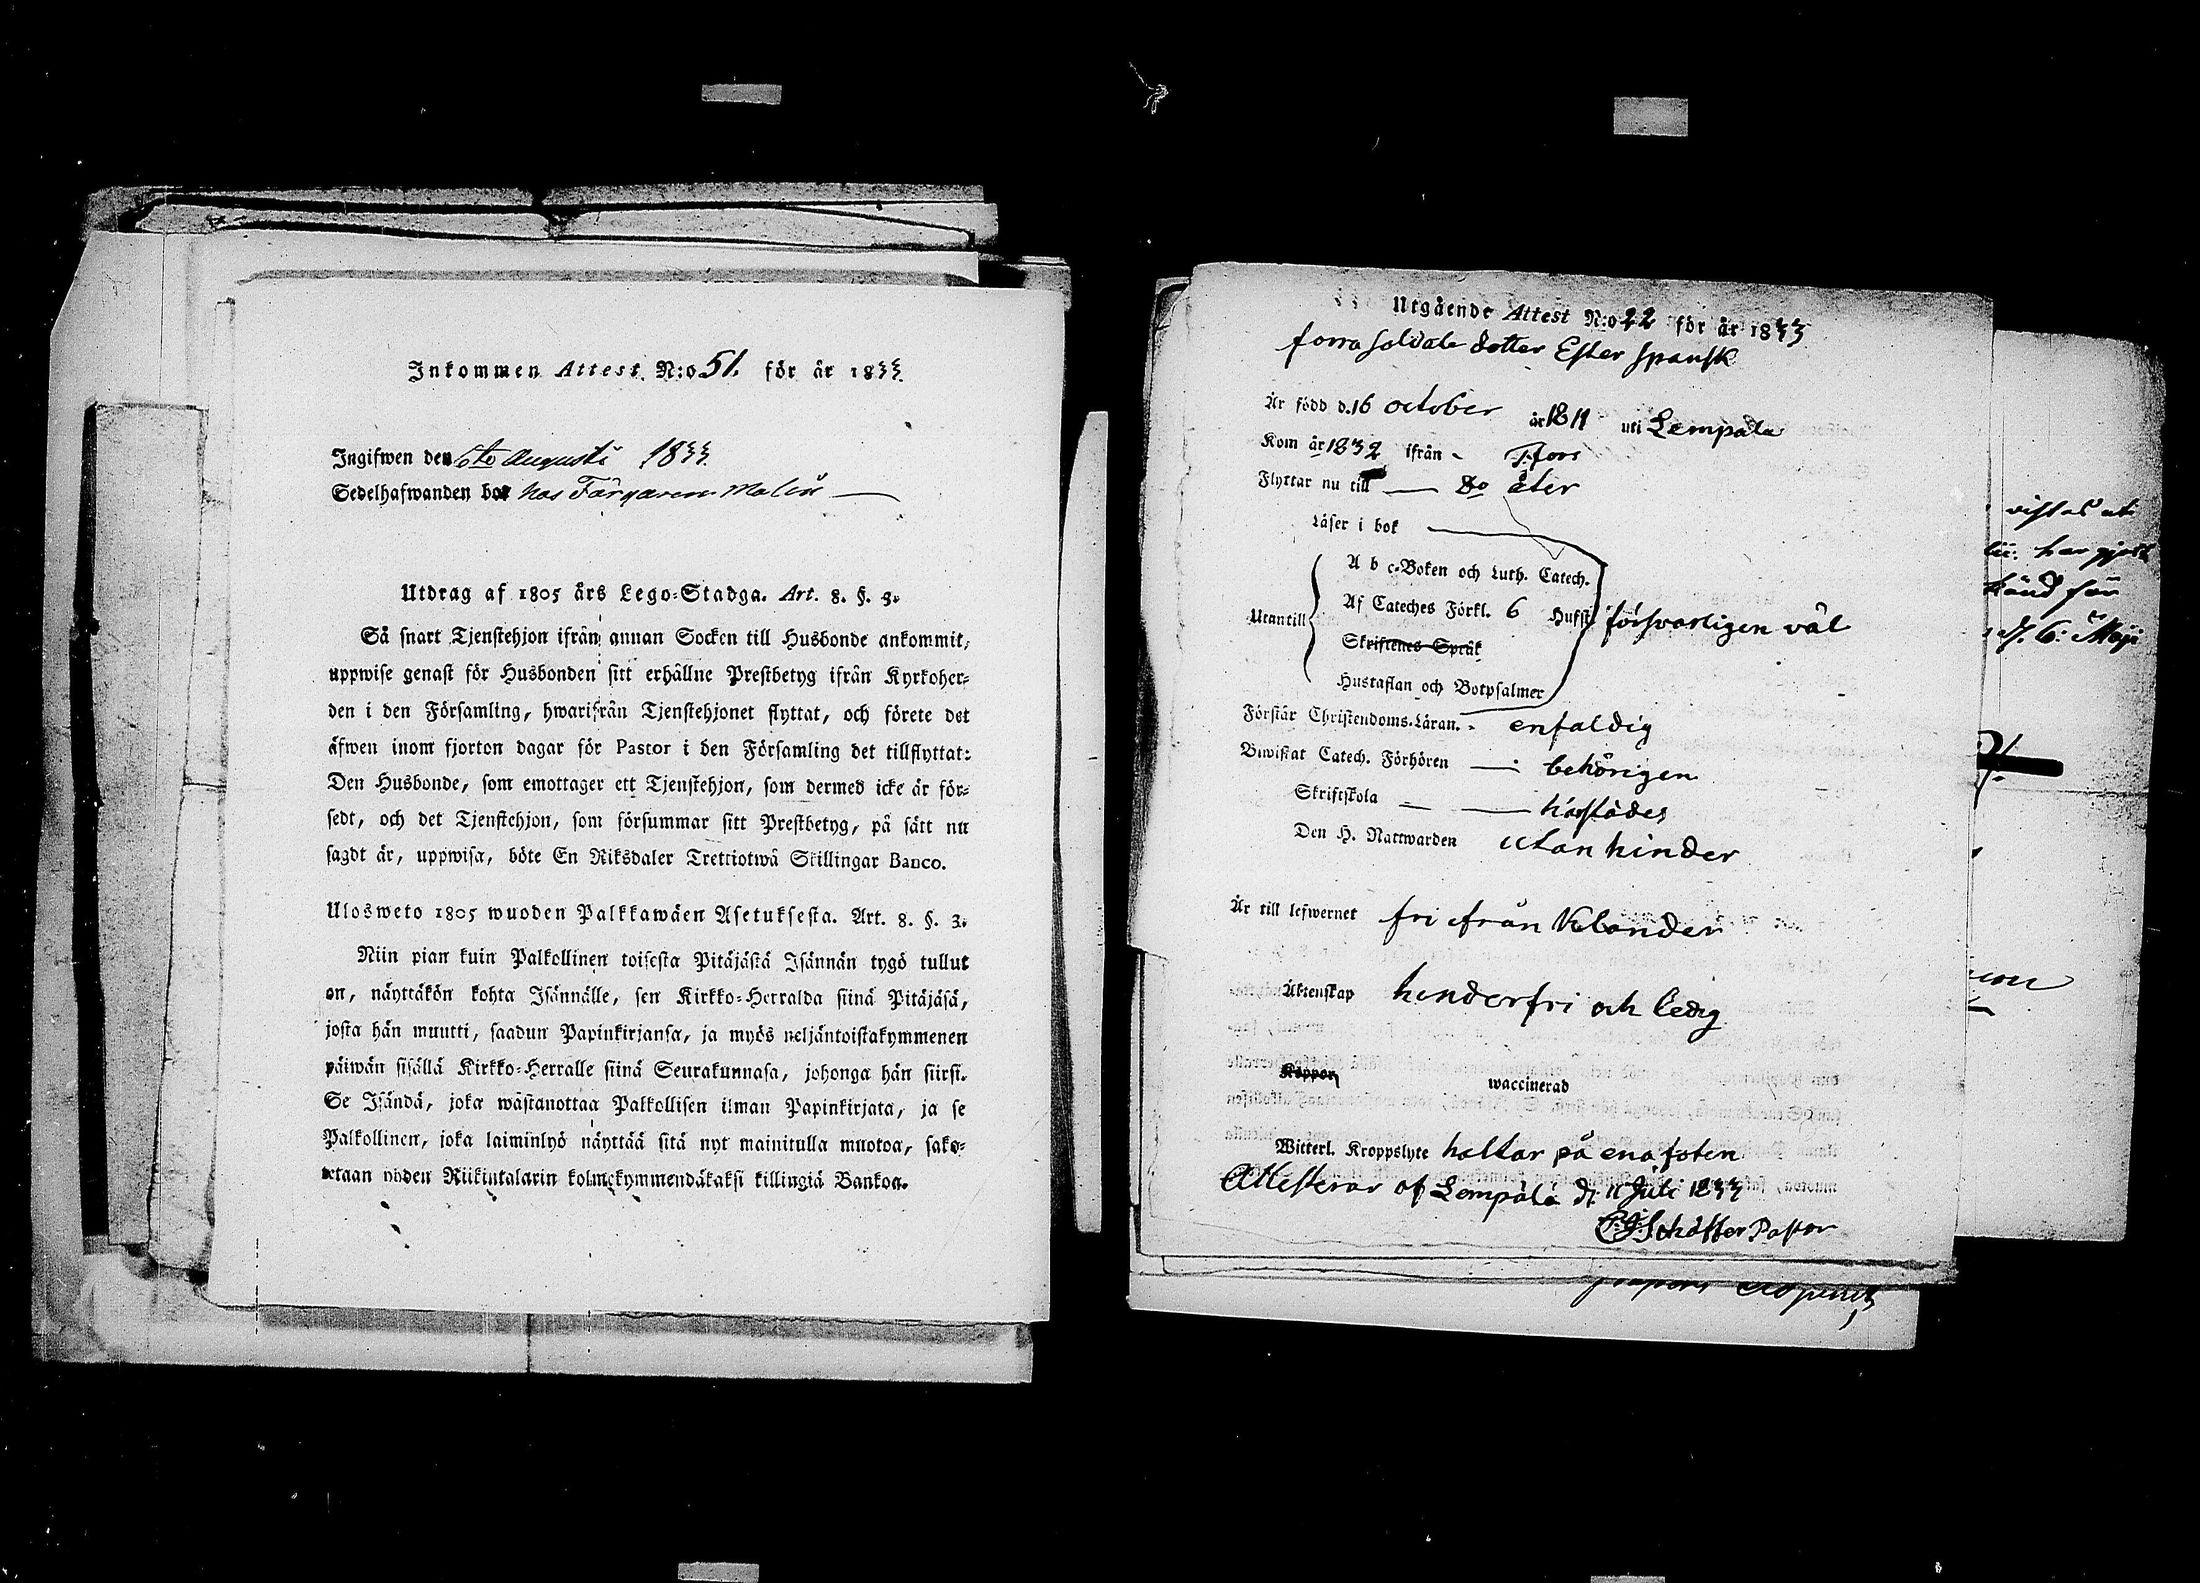 Inkommen Attest N:o 51. för år 1833.
Ingifwen den 6te Augusti 1833.
Sedelhafwanden bor hos Färgaren Malin
Utdrag af 1805 års Lego-Stadga. Art. 8. §. 3.
Så snart Tjenstehjon ifrån annan Socken till Husbonde ankommit,
uppwise genast för Husbonden sitt erhållne Prestbetyg ifrån Kyrkoher-
den i den Församling, hwarifrån Tjenstehjonet flyttat, och förete det
äfwen inom fjorton dagar för Pastor i den Församling det tillflyttat:
Den Husbonde, som emottager ett Tjenstehjon, som dermed icke är för-
sedt, och det Tjenstehjon, som försummar sitt Prestbetyg, på sätt nu
sagdt är, uppwisa, böte En Riksdaler Trettiotwå Skillingar Banco.
Ulosweto 1805 wuoden Palkkawäen Asetuksesta. Art. 8. §. 3.
Niin pian kuin Palkollinen toisesta Pitäjästä Isännän tygö tullut
on, näyttäkön kohta Isännälle, sen Kirkko-Herralda siinä Pitäjäsä,
josta hän muutti, saadun Papinkirjansa, ja myös neljäntoistakymmenen
päiwän sisällä Kirkko-Herralle siinä Seurakunnasa, johonga hän siirsi.
Se Isändä, joka wastanottaa Palkollisen ilman Papinkirjata, ja se
Palkollinen, joka laiminlyö näyttää sitä nyt mainitulla muotoa, sako-
tetaan yhden Riikintalarin kolmekymmendäkaksi killingiä Bankoa.
Utgående Attest N:o 22 för år 1833
forra soldats dotter Ester Spansk
Är född d. 16 october år 1811 uti Lempäla
Kom år 1832 ifrån T.fors
Flyttar nu till do åter
Läser i bok
A b c-Boken och Luth. Catech.
Utantill Af Cateches Förkl. 6 Hufst. försvarligen väl
Skriftenes Språk
Hustaflan och Botpsalmer
Förstår Christendoms-Läran. enfaldig
Biwistat Catech. Förhören behörigen
Skriftskola
Den H. Nattwarden utan hinder
Är till lefwernet fri ifrån klander
Äktenskap hinderfri och ledig
Koppor waccinerad
Witterl. Kroppslyte haltar på ena foten
Attesterar af Lempäla d. 11 Juli 1833
Schäffer Pastor
vistas uti
har gjort
känd för
d. 6: Maji